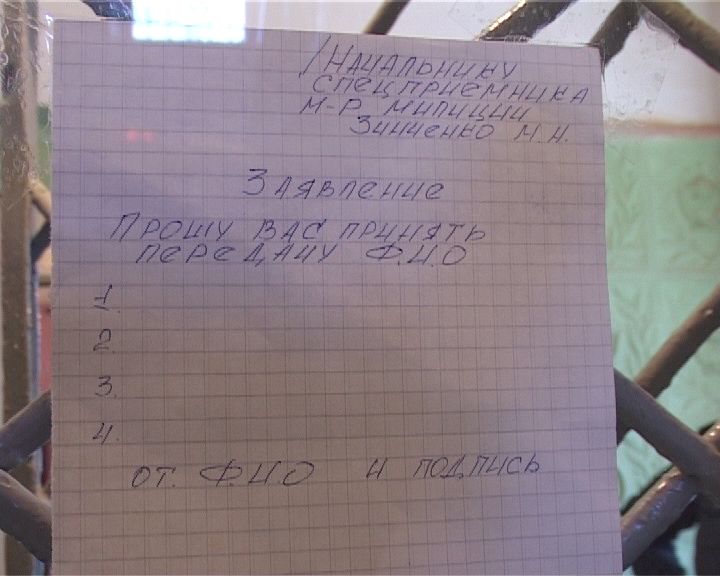 Начальнику
спецприемника
м-р милиции
Зинченко М.Н.
Заявление
Прошу вас принять
передачу Ф.И.О
1.
2.
3.
4.
от. Ф.И.О и подпись